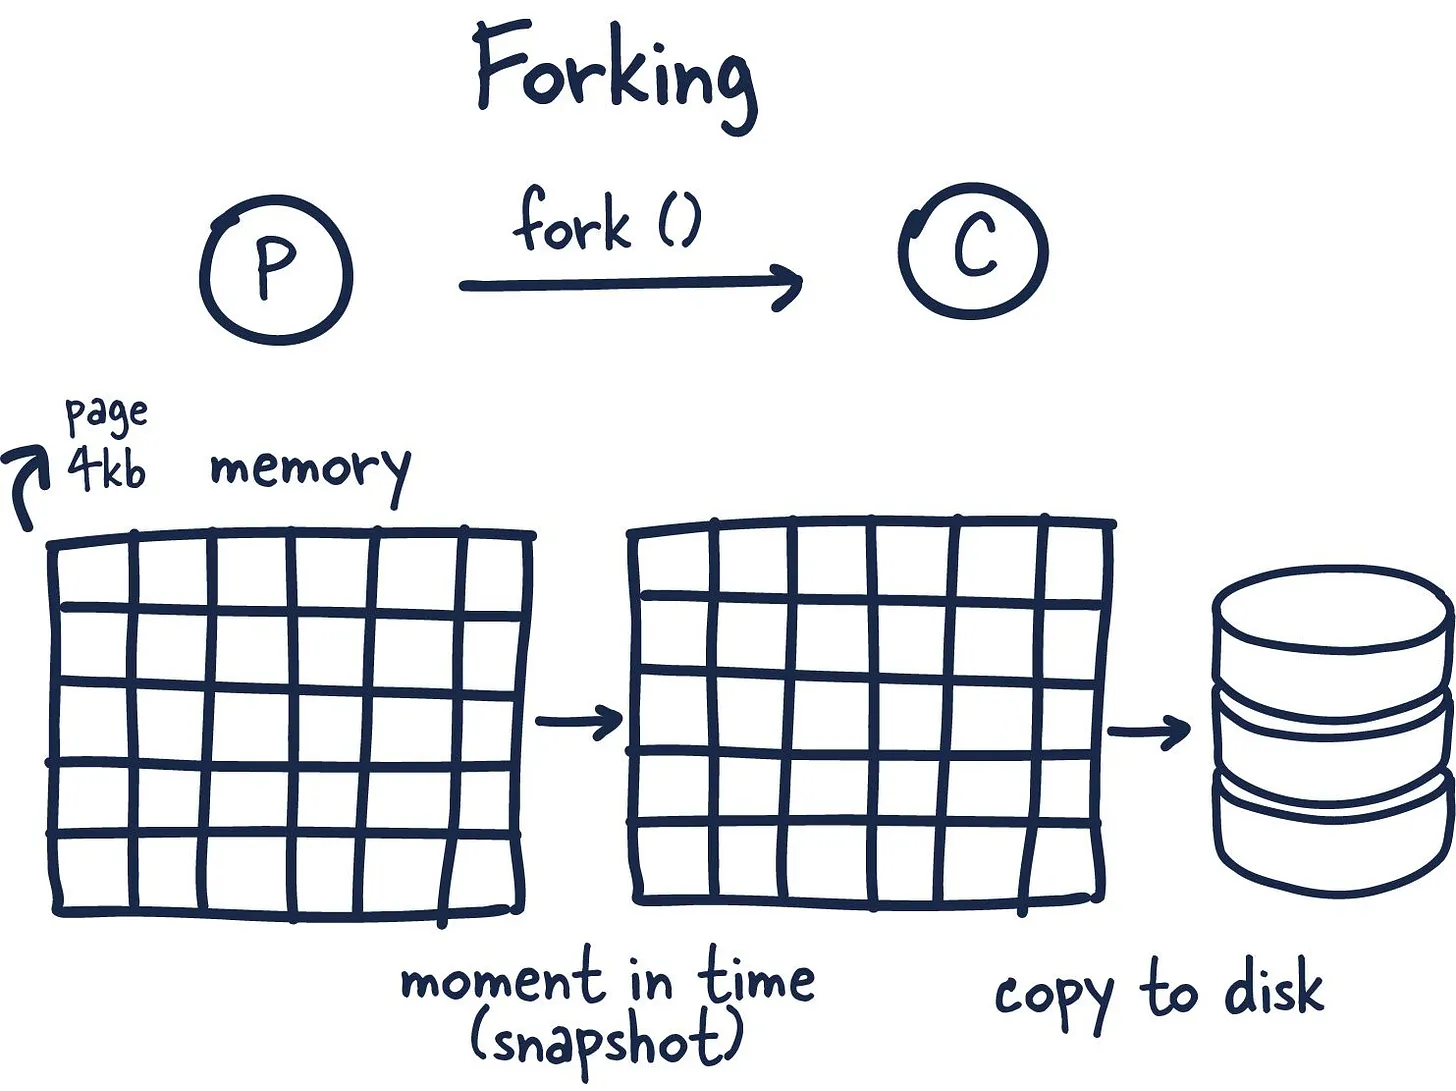 Forking
fork ()
P
C
page
4kb
memory
moment in time
(snapshot)
copy to disk